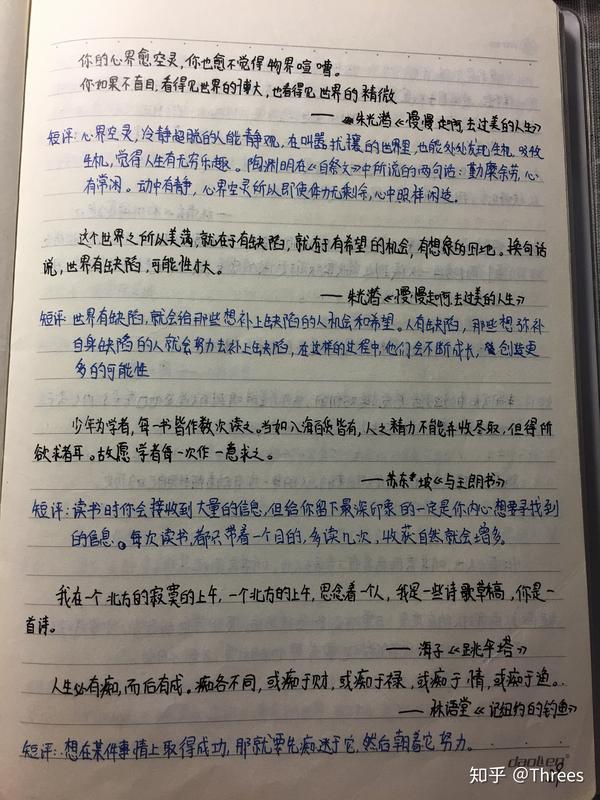 你的心界愈空灵,你也愈不觉得物界喧嘈。
你如果不盲目,看得见世界的博大,也看得见世界的精微
——朱光潜《慢慢走啊,去过美的人生》
短评:心界空灵,冷静超脱的人能静观,在叫嚣扰攘的世界里,也能处处发现生机,吸收
生机,觉得人生有无穷乐趣。陶渊明在《自祭文》中所说的两句话:勤靡余劳,心
有常闲。动中有静,心界空灵所以即使体力无剩余,心中照样闲适。
这个世界之所以美满,就在于有缺陷,就在于有希望的机会,有想象的田地。换句话
说,世界有缺陷,可能性才大。
——朱光潜《慢慢走啊,去过美的人生》
短评:世界有缺陷,就会给那些想补上缺陷的人机会和希望。人有缺陷,那些想弥补
自身缺陷的人就会努力去补上缺陷,在这样的过程中,他们会不断成长,创造更
多的可能性
少年为学者,每一书皆作数次读之。当如入海百货皆有,人之精力不能并收尽取,但得所
欲求者耳。故愿学者每一次作一意求之。
——苏东坡《与王朗书》
短评:读书时你会接收到大量的信息,但给你留下最深印象的一定是你内心想要寻找到
的信息。每次读书,都只带着一个目的,多读几次,收获自然就会增多。
我在一个北方的寂寞的上午,一个北方的上午,思念着一个人,我是一些诗歌草稿,你是一
首诗。
——海子《跳伞塔》
人生必有痴,而后有成。痴各不同,或痴于财,或痴于禄,或痴于情,或痴于渔。
——林语堂《记纽约的钓鱼》
短评:想在某件事情上取得成功,那就要先痴迷于它,然后朝着它努力。
知乎 @Threes